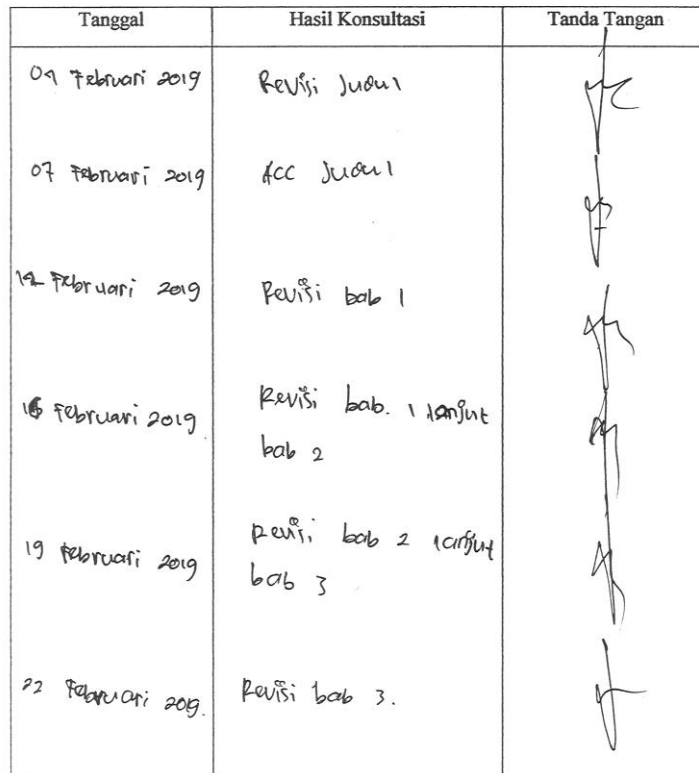 Tanggal Hasil Konsultasi Tanda Tangan
04 Februari 2019 Revisi Judul
07 Februari 2019 ACC Judul
12 Februari 2019 Revisi bab 1
16 Februari 2019 Revisi bab. 1 lanjut
bab 2
19 Februari 2019 Revisi bab 2 lanjut
bab 3
22 Februari 2019. Revisi bab 3.